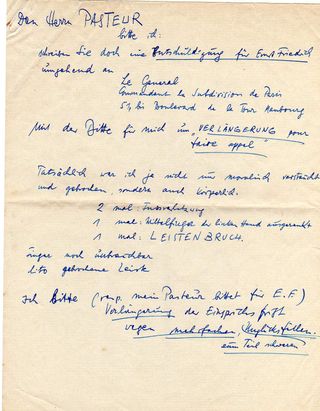 Den Herrn PASTEUR
bitte ich:
schreiben Sie doch eine Entschuldigung für Ernst Friedrich
umgehend an
Le General
Commandant la Subdivision de Paris
51 bis Boulevard de la Tour Maubourg
Mit der Bitte für mich um "VERLÄNGERUNG pour
faire appel"
Tatsächlich war ich ja nicht nur moralisch verstaucht
und gebrochen, sondern auch körperlich.
2 mal: Fussverletzung
1 mal: Mittelfinger der linken Hand ausgerenkt
1 mal: LEISTENBRUCH.
noch
gebrochene Leiste
ich bitte (resp. mein Pasteur bittet für E.F)
Verlängerung der Einspruchsfrist
wegen mehrfachen, Unglücksfällen.
zum Teil schweren